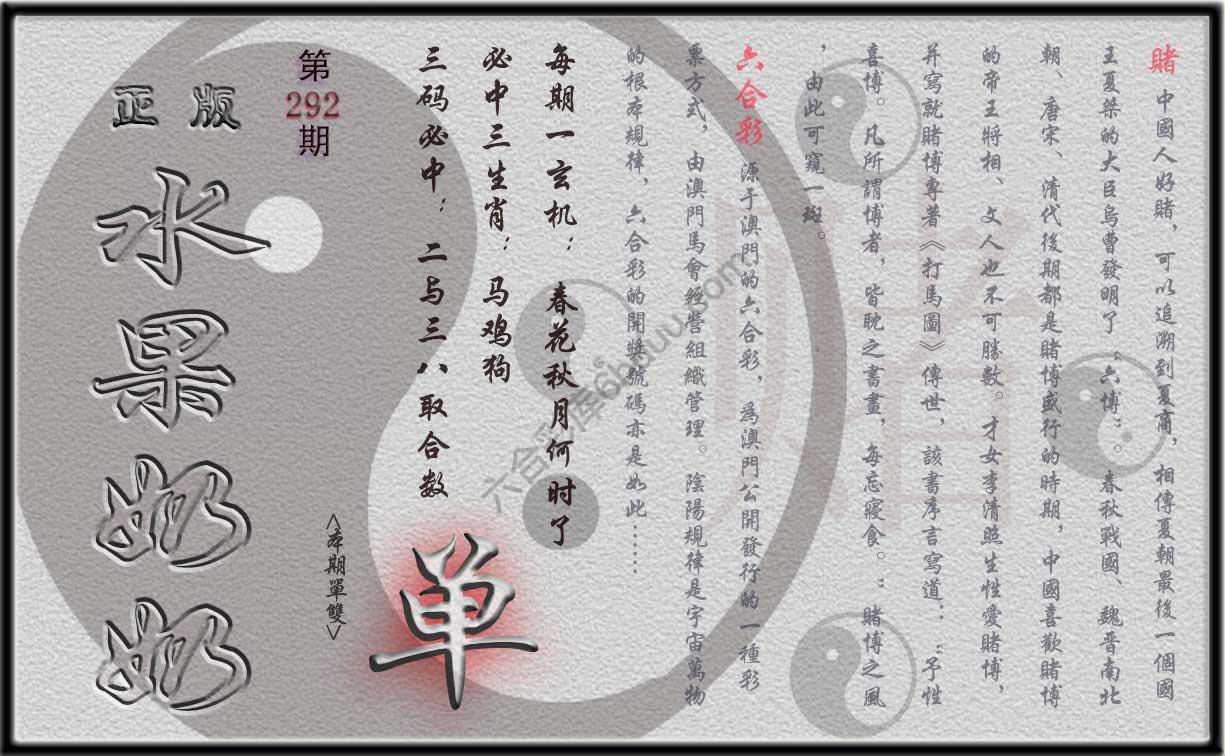 賭 中國人好賭，可以追溯到夏商，相傳夏朝最後一個國
王夏桀的大臣烏曹發明了“六博”。春秋戰國、魏晋南北
朝、唐宋、清代後期都是賭博盛行的時期，中國喜歡賭博
的帝王將相、文人也不可勝數。才女李清照生性愛賭博，
并寫就賭博專著《打馬圖》傳世，該書序言寫道：“予性
喜博。凡所謂博者，皆耽之書畫，每忘寢食。：賭博之風
，由此可窺一斑。
六合彩 源于澳門的六合彩，爲澳門公開發行的一種彩
票方式，由澳門馬會經營組織管理。陰陽規律是宇宙萬物
的根本規律，六合彩的開獎號碼亦是如此……
每期一玄机：春花秋月何时了
必中三生肖：马鸡狗
三码必中：二与三八取合数
单
<本期單雙>
第
292
期
正版
水果奶奶
賭
六合彩库6huuu.com